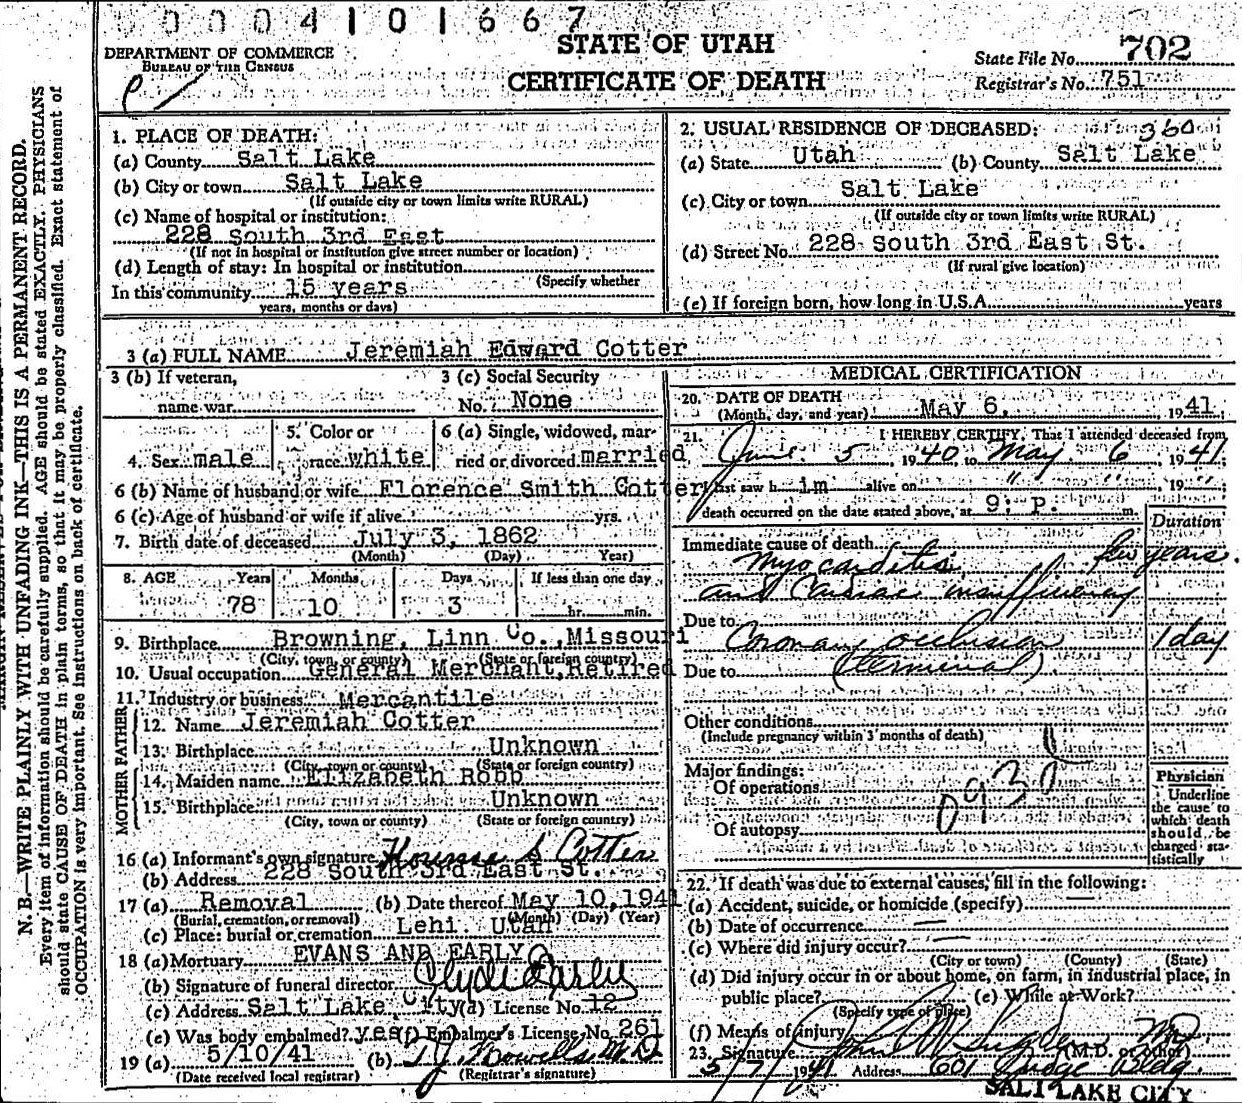 0004101667
DEPARTMENT OF COMMERCE
BUREAU OF THE CENSUS
STATE OF UTAH
CERTIFICATE OF DEATH
State File No. 702
Registrar's No. 751
N. B.—WRITE PLAINLY WITH UNFADING INK—THIS IS A PERMANENT RECORD.
Every item of information should be carefully supplied. AGE should be stated EXACTLY. PHYSICIANS
should state CAUSE OF DEATH in plain terms, so that it may be properly classified. Exact statement of
OCCUPATION is very important. See instructions on back of certificate.
1. PLACE OF DEATH:
(a) County Salt Lake
(b) City or town Salt Lake
(If outside city or town limits write RURAL)
(c) Name of hospital or institution:
228 South 3rd East
(If not in hospital or institution give street number or location)
(d) Length of stay: In hospital or institution
(Specify whether
In this community 15 years
years, months or days)
2. USUAL RESIDENCE OF DECEASED: 360
(a) State Utah (b) County Salt Lake
(c) City or town Salt Lake
(If outside city or town limits write RURAL)
(d) Street No. 228 South 3rd East St.
(If rural give location)
(e) If foreign born, how long in U.S.A. years
3 (a) FULL NAME Jeremiah Edward Cotter
3 (b) If veteran, 3 (c) Social Security
name war No. None
4. Sex male 5. Color or race white 6 (a) Single, widowed, married or divorced married
6 (b) Name of husband or wife Florence Smith Cotter
6 (c) Age of husband or wife if alive yrs.
7. Birth date of deceased July 3, 1862
(Month) (Day) Year)
8. AGE Years Months Days If less than one day
78 10 3 hr. min.
9. Birthplace Browning, Linn Co., Missouri
(City, town, or county) (State or foreign country)
10. Usual occupation General Merchant, Retired
11. Industry or business Mercantile
FATHER
12. Name Jeremiah Cotter
13. Birthplace Unknown
(City, town or county) (State or foreign country)
MOTHER
14. Maiden name Elizabeth Robb
15. Birthplace Unknown
(City, town or county) (State or foreign country)
16 (a) Informant's own signature S Cotter
(b) Address 228 South 3rd East St.
17 (a) Removal (b) Date thereof May 10, 1941
(Burial, cremation, or removal) (Month) (Day) (Year)
(c) Place: burial or cremation Lehi, Utah
18 (a) Mortuary EVANS AND EARLY
(b) Signature of funeral director Clyde Early
(c) Address Salt Lake City (d) License No. 12
(e) Was body embalmed? yes (f) Embalmer's License No. 261
19 (a) 5/10/41 (b) T. J. Howells M D
(Date received local registrar) (Registrar's signature)
MEDICAL CERTIFICATION
20. DATE OF DEATH
(Month, day, and year) May 6, 1941
21. I HEREBY CERTIFY, That I attended deceased from
June 5, 1940, to May 6, 1941
I last saw him alive on " ", 19 "
death occurred on the date stated above, at 9: P. m.
Duration
Immediate cause of death
Myocarditis few years
and Cardiac insufficiency
Due to Coronary occlusion 1 day
Due to (terminal)
Other conditions
(Include pregnancy within 3 months of death)
Major findings:
Of operations
Of autopsy
Physician
Underline
the cause to
which death
should be
charged sta-
tistically
22. If death was due to external causes, fill in the following:
(a) Accident, suicide, or homicide (specify)
(b) Date of occurrence
(c) Where did injury occur?
(City or town) (County) (State)
(d) Did injury occur in or about home, on farm, in industrial place, in
public place? (e) While at Work?
(Specify type of place)
(f) Means of injury
23. Signature John M Sugden MD (M.D. or other)
5/7/1941 Address 601 Judge Bldg.
SALT LAKE CITY